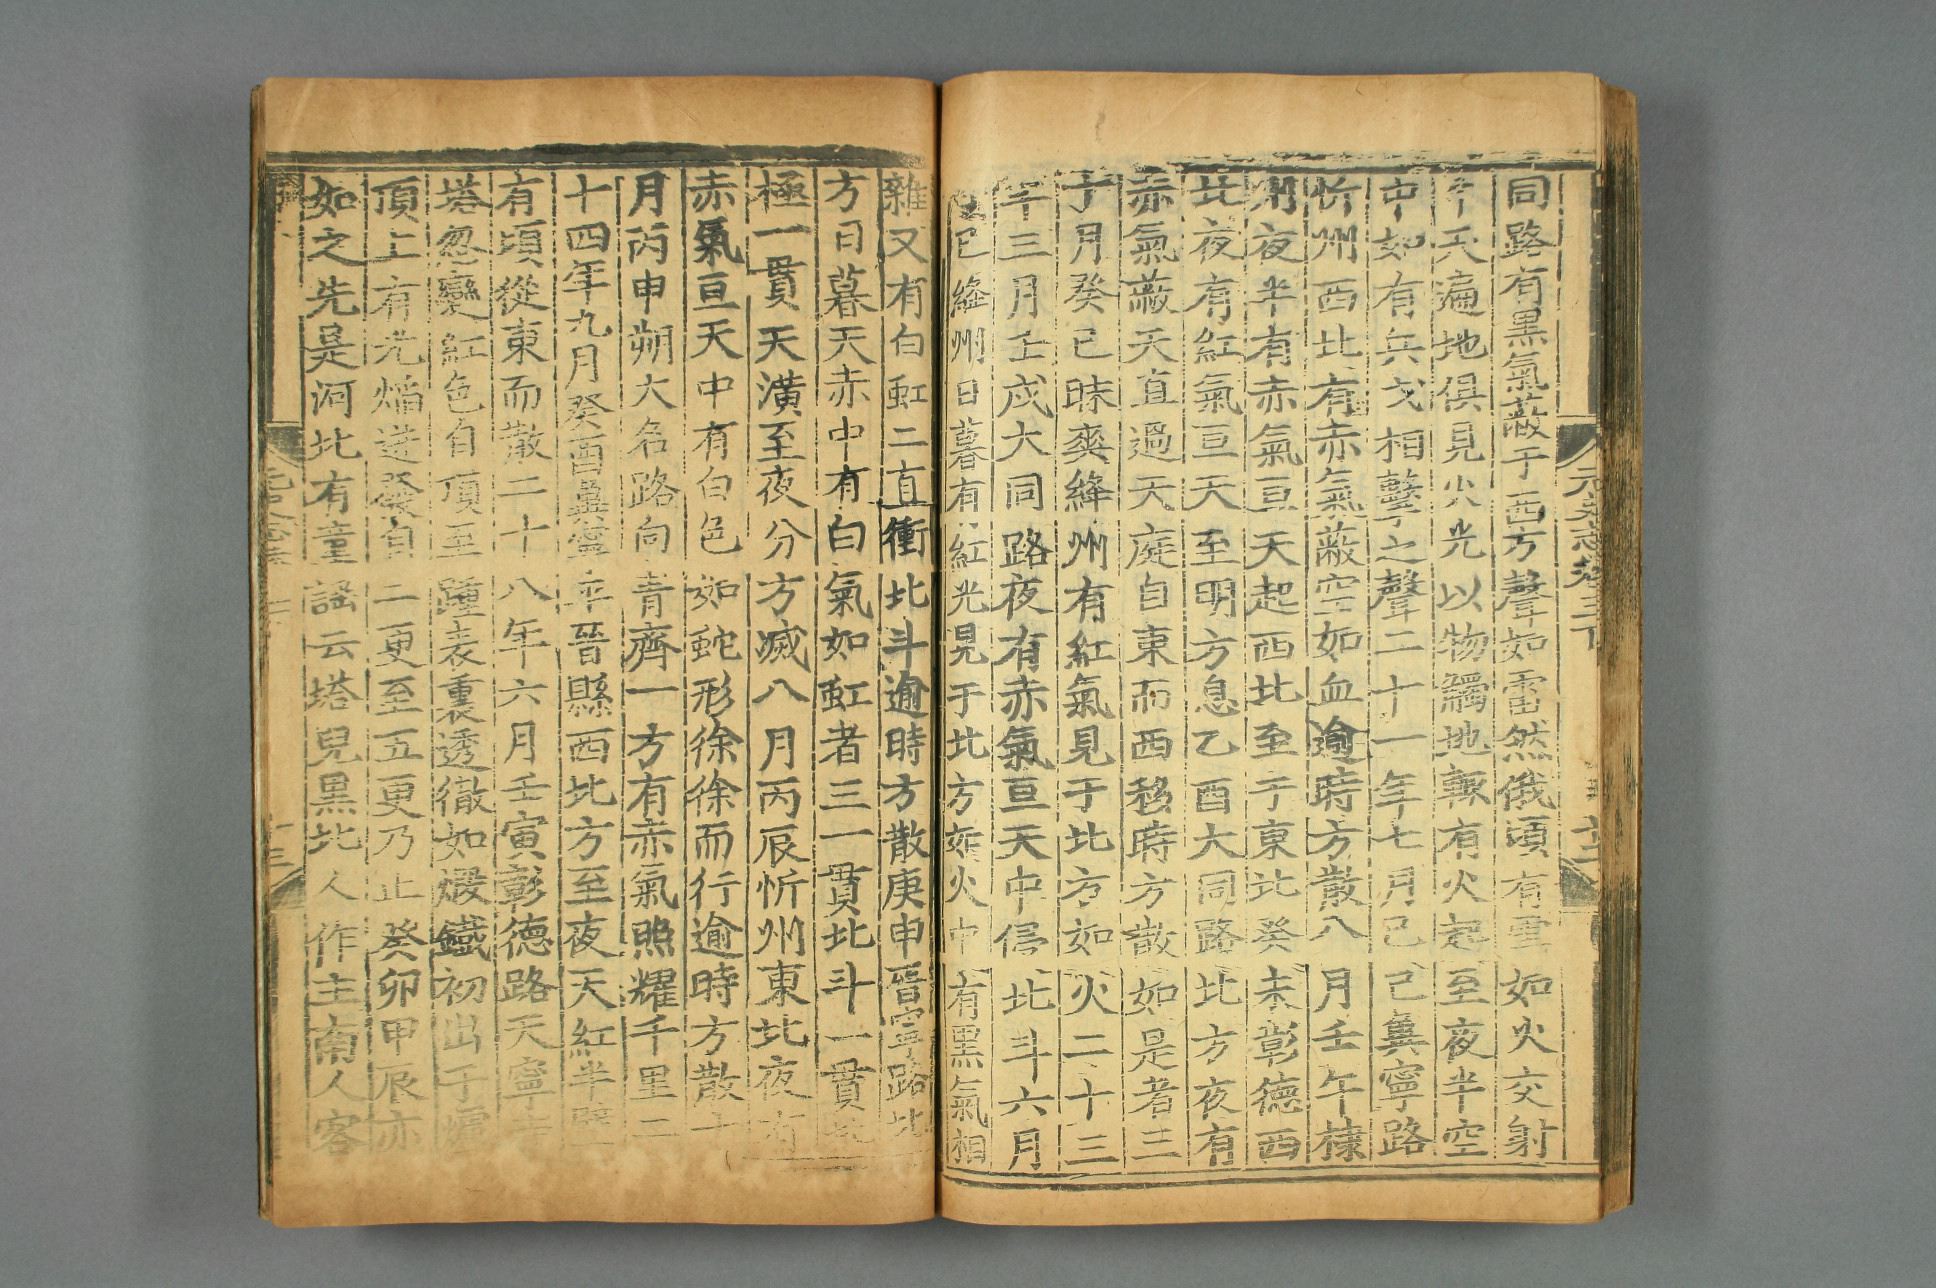 元史志卷三下
同路有黑氣蔽于西方聲如雷然俄頃有雲如火交射
中天遍地俱見火光以物觸地輒有火起至夜半空
中如有兵戈相擊之聲二十一年七月己巳冀寧路
忻州西北有赤氣蔽空如血逾時方散八月壬午棣
州夜半有赤氣亘天起西北至于東北癸未彰德西
北夜有紅氣亘天至明方息乙酉大同路北方夜有
赤氣蔽天直過天庭自東而西移時方散如是者三
十月癸巳昧爽絳州有紅氣見于北方如火二十三
年三月壬戌大同路夜有赤氣亘天中侵北斗六月
巳絳州日暮有紅光見于北方如火中有黑氣相
雜又有白虹二直衝北斗逾時方散庚申晉寧路北
方日暮天赤中有白氣如虹者三一貫北斗一貫北
極一貫天潢至夜分方滅八月丙辰忻州東北夜有
赤氣亘天中有白色如蛇形徐徐而行逾時方散十
月丙申朔大名路向青齊一方有赤氣照耀千里二
十四年九月癸酉冀寧平晉縣西北方至夜天紅半壁
有頃從東而散二十八年六月壬寅彰德路天寧寺
塔忽變紅色自頂至踵表裏透徹如煅鐵初出于爐
頂上有光焰迸發自二更至五更乃止癸卯甲辰亦
如之先是河北有童謠云塔兒黑北人作主南人客